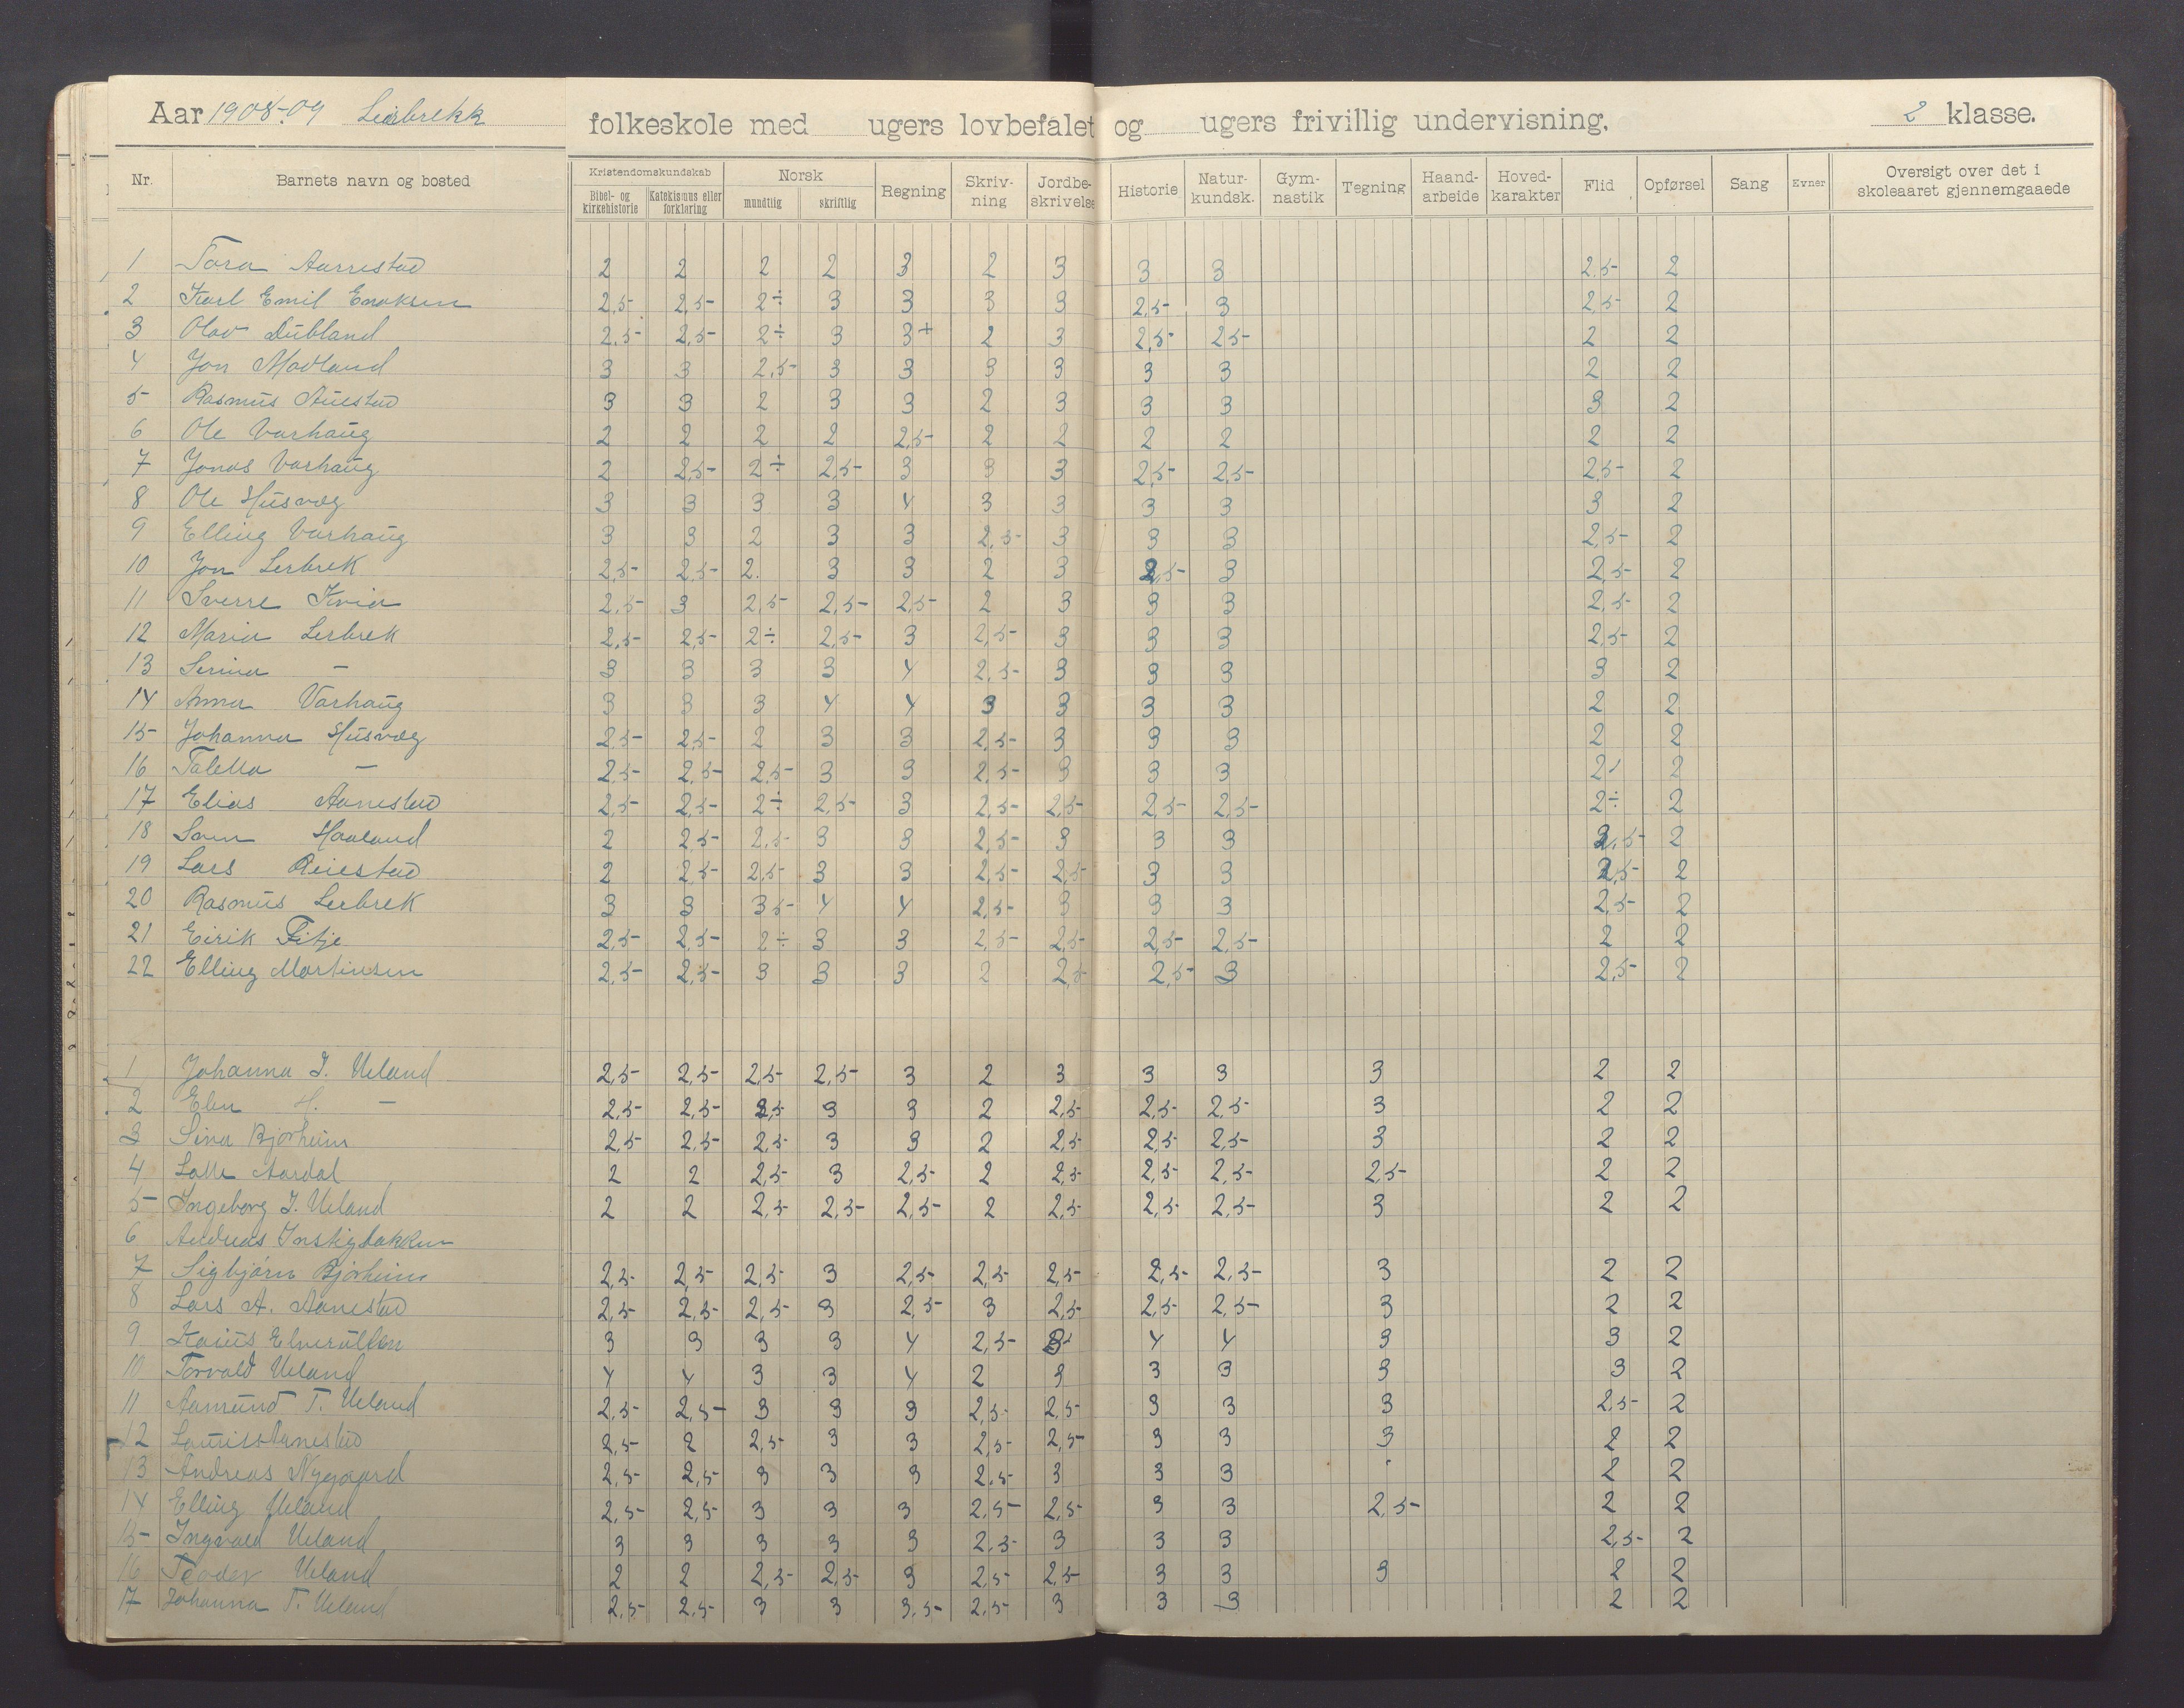 Aar 1908-09 Lerbrekk folkeskole med ugers lovbefalet og ugers frivillig undervisning. 2 klasse.
Nr. Barnets navn og bosted Kristendomskundskab Norsk Regning Skriv-ning Jordbe-skrivelse Historie Natur-kundsk. Gym-nastik Tegning Haand-arbeide Hoved-karakter Flid Opførsel Sang Evner Oversigt over det i skoleaaret gjennemgaaede
Bibel- og kirkehistorie Katekismus eller forklaring mundtlig skriftlig
1 Tora Aarrestad 2 2 2 2 3 2 3 3 3 2.5 2
2 Karl Emil Enoksen 2,5 2,5 2÷ 3 3 3 3 2,5 3 2,5 2
3 Olav Dubland 2,5 2,5 2÷ 3 3+ 2 3 2,5 2,5 2 2
4 Jon Modland 3 3 2,5 3 3 3 3 3 3 2 2
5 Rasmus Auestad 3 3 2 3 3 2 3 3 3 3 2
6 Ole Varhaug 2 2 2 2 2,5 2 2 2 2 2 2
7 Jonas Varhaug 2 2,5 2÷ 2,5 3 3 3 2,5 2,5 2,5 2
8 Ole Husvæg 3 3 3 3 4 3 3 3 3 3 2
9 Elling Varhaug 3 3 2 3 3 2,5 3 3 3 2,5 2
10 Jon Lerbrek 2,5 2,5 2. 3 3 2 3 2,5 3 2,5 2
11 Sverre Kvia 2,5 3 2,5 2,5 2,5 2 3 3 3 2,5 2
12 Maria Lerbrek 2,5 2,5 2÷ 2,5 3 2,5 3 3 3 2,5 2
13 Serina – 3 3 3 3 4 2,5 3 3 3 3 2
14 Anna Varhaug 3 3 3 4 4 3 3 3 3 2 2
15 Johanna Husvæg 2,5 2,5 2 3 3 2,5 3 3 3 2 2
16 Taletta – 2,5 2,5 2,5 3 3 2,5 3 3 3 2 2
17 Elias Aanestad 2,5 2,5 2÷ 2,5 3 2,5 2,5 2,5 2,5 2÷ 2
18 Sam Haaland 2 2,5 2,5 3 3 2,5 3 3 3 2,5 2
19 Lars Reiestad 2 2,5 2,5 3 3 2,5 2,5 3 3 2,5 2
20 Rasmus Lerbrek 3 3 3 5 4 4 2,5 3 3 3 2,5 2
21 Eirik Fitje 2,5 2,5 2÷ 3 3 2,5 2,5 2,5 2,5 2 2
22 Elling Martinsen 2,5 2,5 3 3 3 2 2,5 2,5 3 2,5 2
1 Johanna I. Ueland 2,5 2,5 2,5 2,5 3 2 3 3 3 3 2 2
2 Elen H. – 2,5 2,5 2,5 3 3 2 2,5 2,5 2,5 3 2 2
3 Sina Bjorheim 2,5 2,5 2,5 3 3 2 2,5 2,5 2,5 3 2 2
4 Aardal 2 2 2,5 3 2,5 2 2,5 2,5 2,5 2,5 2 2
5 Ingeborg I. Ueland 2 2 2,5 2,5 2,5 2 2,5 2,5 2,5 3 2 2
6 Andreas Instigbakken
7 Sigbjørn Bjorheim 2,5 2,5 2,5 3 2,5 2,5 2,5 2,5 2,5 3 2 2
8 Lars A. Aanestad 2,5 2,5 2,5 3 2,5 3 2,5 2,5 2,5 3 2 2
9 3 3 3 3 4 2,5 3 4 4 3 3 2
10 Torvald Ueland 4 4 3 3 4 2 3 3 3 3 3 2
11 Aamund T. Ueland 2,5 2,5 3 3 3 2,5 2,5 3 3 3 2,5 2
12 Aanestad 2,5 2 2,5 3 3 2,5 2,5 3 3 3 2 2
13 Andreas Nygaard 2,5 2,5 3 3 3 2,5 3 3 3 2 2
14 Elling Ueland 2,5 2,5 3 3 3 2,5 2,5 3 3 2,5 2 2
15 Ingvald Ueland 3 3 3 3 3 2,5 3 3 3 2,5 2
16 Teodor Ueland 2 2 2,5 2,5 3 2,5 2,5 3 3 3 2 2
17 Johanna T. Ueland 2,5 2,5 3 3 3,5 2,5 3 3 3 2 2